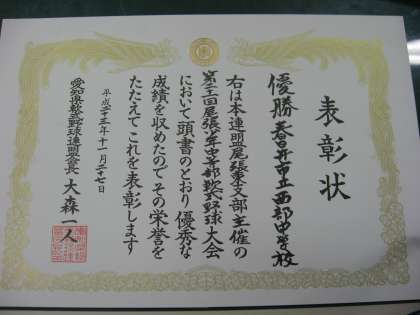 表彰状
優勝 春日井市立西部中学校
右は本連盟尾張支部主催の
少年中等部軟式野球大会
において頭書のとおり優秀な
成績を収めたのでその栄誉を
たたえてこれを表彰します
平成二十三年十一月二十七日
愛知県軟式野球連盟会長 大森一人